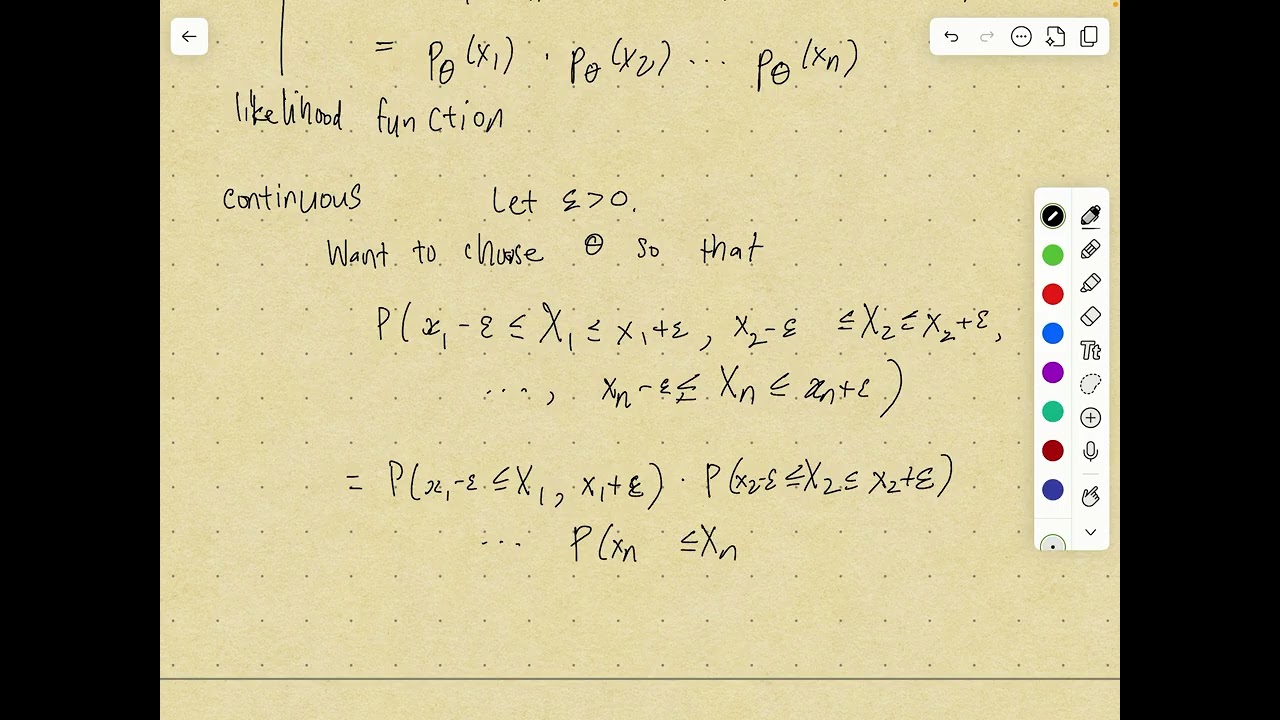 = p_θ(x₁) · p_θ(x₂) ... p_θ(xₙ)
likelihood function
continuous Let ε>0.
Want to choose θ so that
P(x₁-ε ≤ X₁ ≤ x₁+ε, x₂-ε ≤X₂≤ x₂+ε,
..., xₙ-ε≤ Xₙ ≤ xₙ+ε)
= P(x₁-ε ≤X₁, x₁+ε) · P(x₂-ε≤X₂≤ x₂+ε)
... P(xₙ ≤Xₙ
Tt